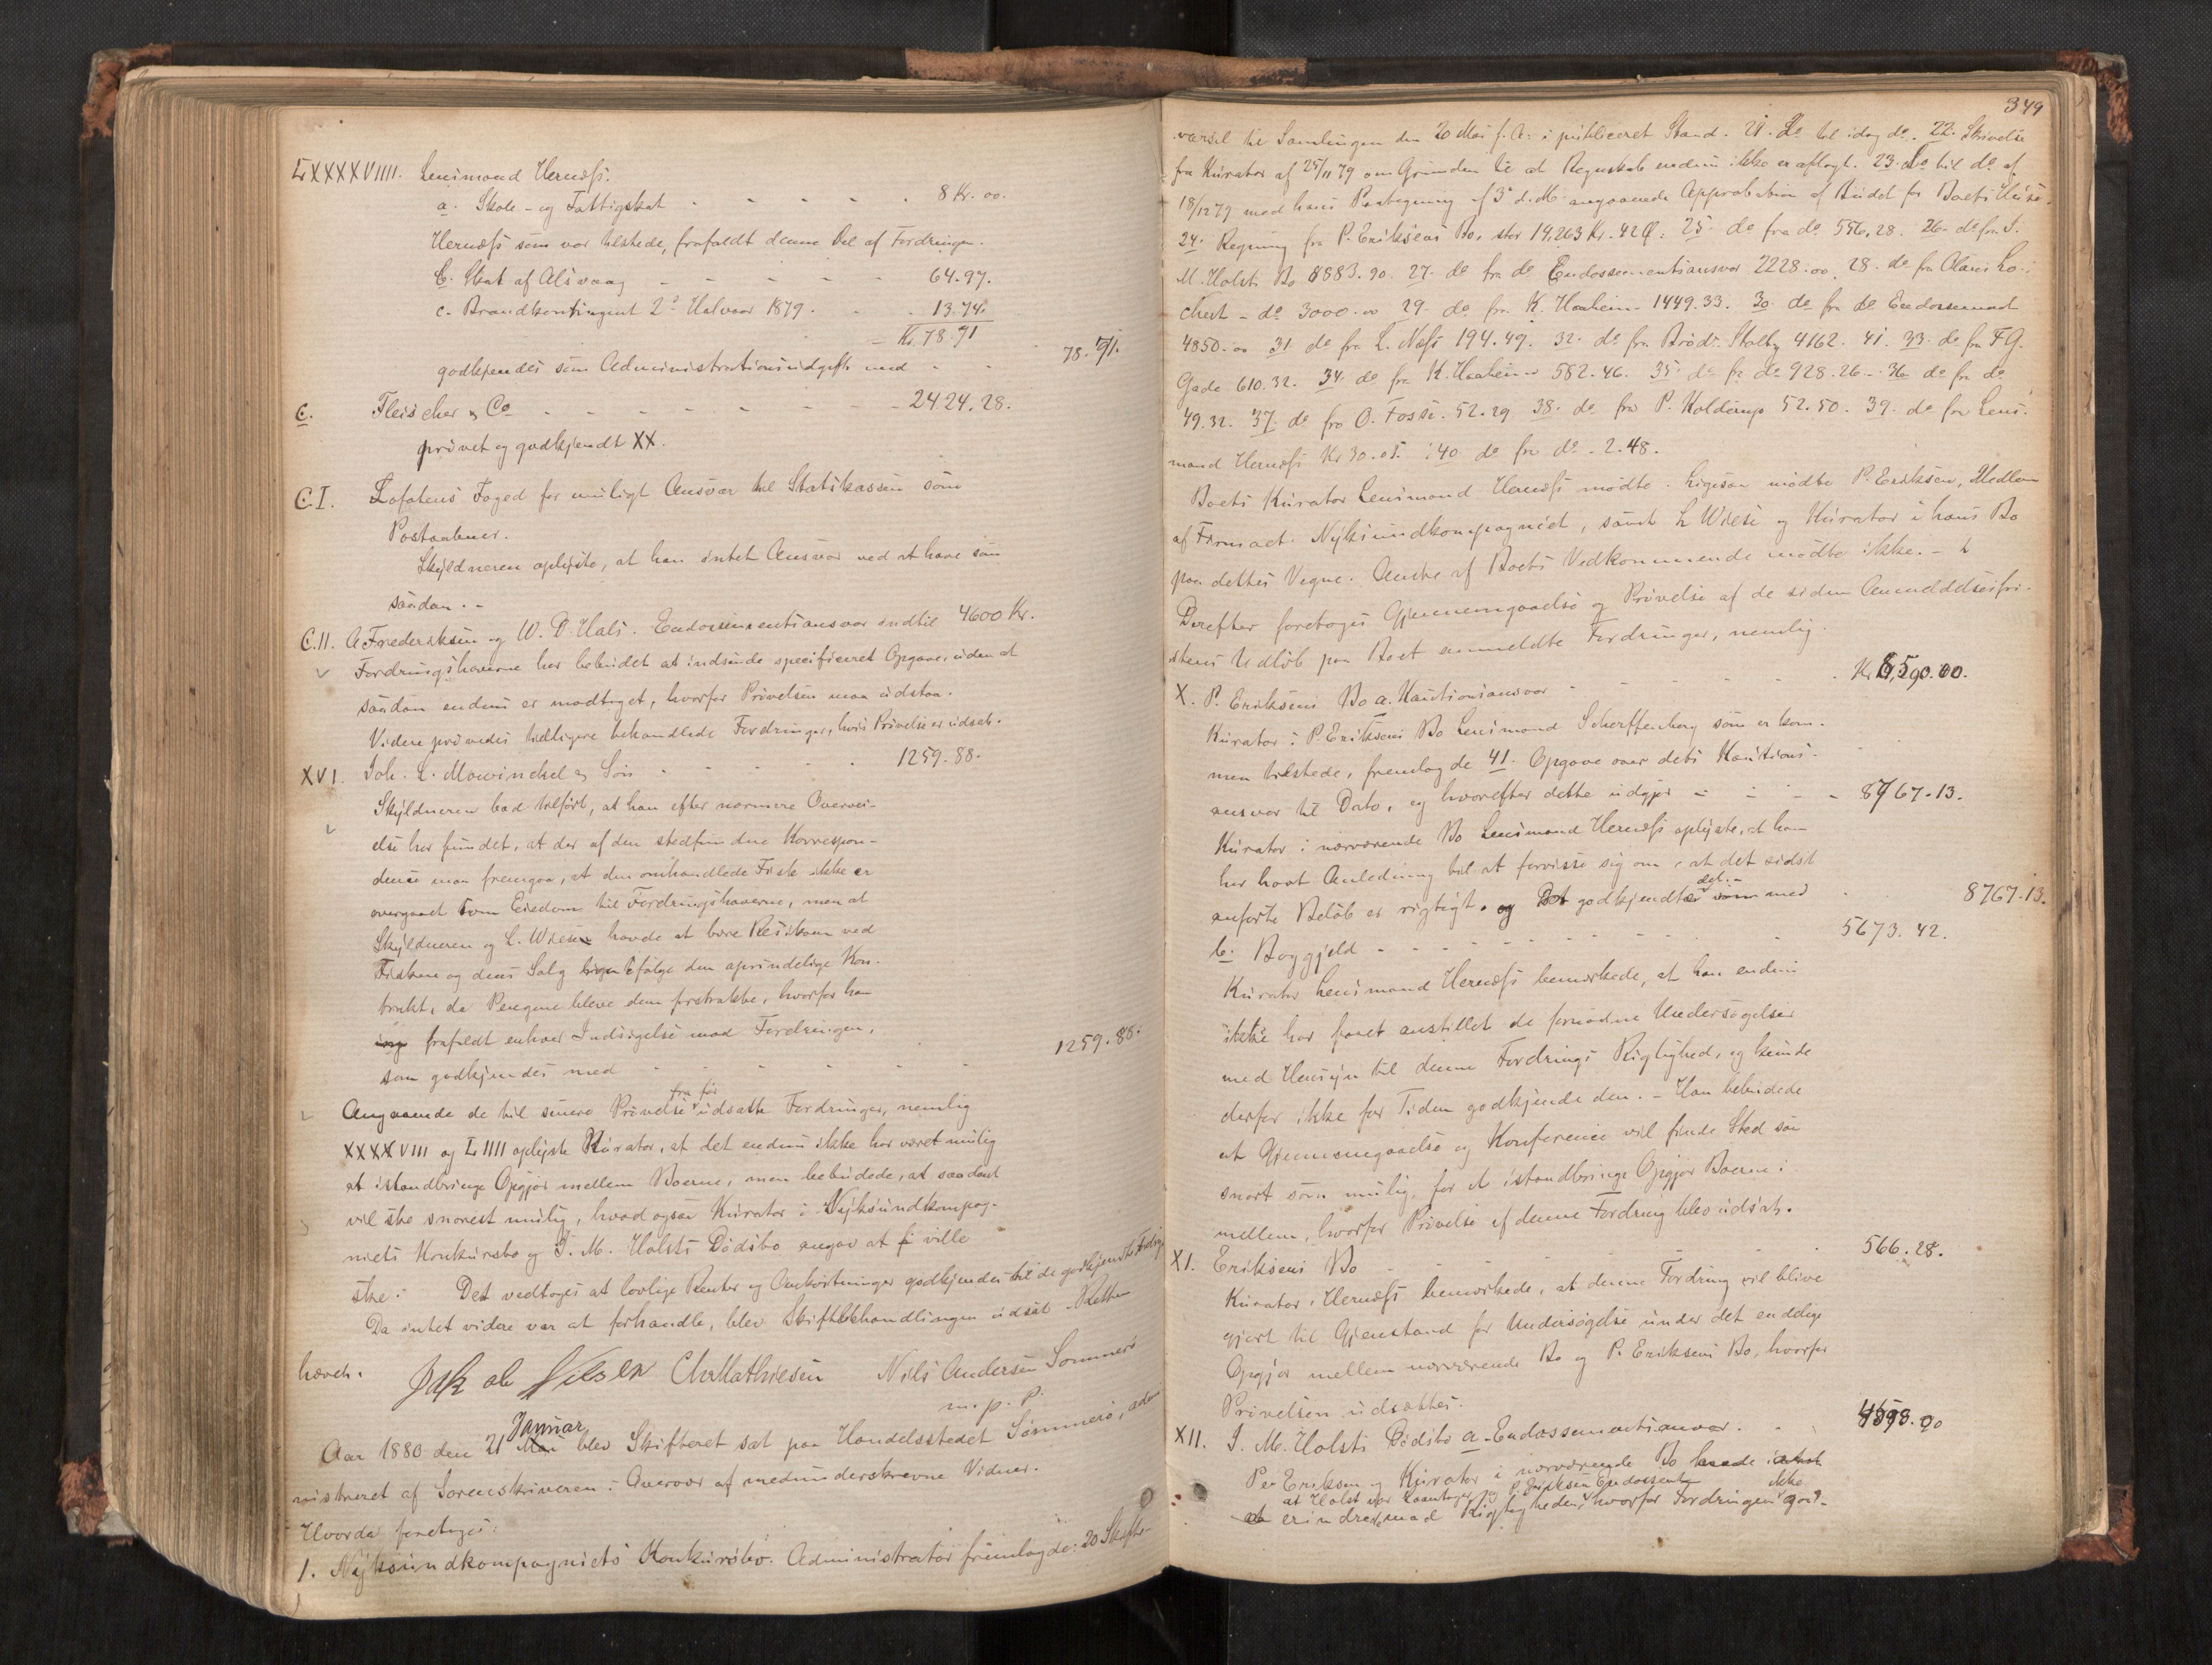 LXXXXVIIII. Lensmand Hernæss.
a. Skole- og Fattigskat - - - - - 8 Kr. 00.
Hernæss som var tilstede, frafaldt denne Del af Fordringen.
b. Skat af Alsvaag - - - - - 64.97.
c. Brandkontingent 2det Halvaar 1879. - - 13.94.
Kr. 78.91
godkjendes som Administrationsudgift med - - 78.91.
C. Fleischer & Co - - - - - - - 2424.28.
prøvet og godkjendt XX.
C.I. Lofotens Foged for muligt Ansvar til Statskassen som
Postaabner.
Skyldneren oplyste, at han intet Ansvar ved at have som
saadan. -
C.II. A Frederiksen og W. D. Hals. Endossementsansvar indtil 4600 Kr.
Fordringshaverne har bebudet at indsende specificeret Opgave, uden at
saadan endnu er modtaget, hvorfor Prøvelsen maa udstaa.
Videre prøvedes tidligere behandlede Fordringer, hvis Prøvelse er udsat.
XVI. Joh. L. Mowinckel & Søn - - - - - 1259.88.
Skyldneren bad tilført, at han efter nærmere Overvei-
else har fundet, at der af den stedfundne Korrespon-
dence maa fremgaa, at den omhandlede Fisk ikke er
overgaaet som Eiedom til Fordringshaverne, men at
Skyldneren og L. Wiese havde at bære Risikoen ved
Fisken og dens Salg ifølge den oprindelige Kon-
trakt, da Pengene bleve dem forstrakte, hvorfor han
frafaldt enhver Indsigelse mod Fordringen,
som godkjendes med - - - - - - 1259.88.
Angaaende de til senere Prøvelse fra før udsatte Fordringer, nemlig
XXXXVIII og LIIII oplyste Kurator, at det endnu ikke har været mulig
at istandbringe Opgjør mellem Boerne, men bebudede, at saadant
vil ske snarest mulig, hvad ogsaa Kurator i Nyksundkompag-
niets Konkursbo og J. M. Holsts Dødsbo angav at ville
ske. Det vedtoges at lovlige Renter og Omkostninger godkjendes til de godkjendte Fordring
Da intet videre var at forhandle, blev Skiftebehandlingen udsat. Retten
hævet.
Jakob Nilsen Chr Mathiesen Niels Andersen Sommerø
m. p. P.
Aar 1880 den 21 Januar blev Skifteret sat paa Handelsstedet Sommerø, admi
nistreret af Sorenskriveren i Overvær af medunderskrevne Vidner.
Hvorda foretoges:
1. Nyksundkompagniets Konkursbo. Administrator fremlagde: 20 Skifte-
349
varsel til Samlingen den 20 Mai f. A. i publiceret Stand. 21. do til idag do. 22. Skrivelse
fra Kurator af 25/11 79 om Grunden til at Regnskab endnu ikke er aflagt. 23. do til do af
18/12 79 med hans Paategning af 3 d. M. angaaende Approbation af Budet for Boets Huse.
24. Regning fra P. Eriksens Bo, stor 19,263 Kr. 42 Ø. 25. do fra do 556.28. 26. do fra J.
M. Holsts Bo 8883.90. 27. do fra do Endossementsansvar 2228.00. 28. do fra Claus Lo-
chert - do 3000.00 29. do fra K. Haaheim 1449.33. 30. do fra do Endossement
4850.00 31. do fra L. Næss 194.49. 32. do fra Brødr. Stolt 4162.41. 33. do fra F G.
Gade 610.32. 34. do fra K. Haaheim 582.46. 35. do fra do 928.26. 36. do fra do
49.32. 37. do fra O. Fosse. 52.29 38. do fra P. Holderup 52.50. 39. do fra Lens-
mand Hernæss Kr 30.08. 40 do fra do. 2.48.
Boets Kurator Lensmand Hernæss mødte. Ligesaa mødte P. Eriksen, Medlem
af Firmaet Nyksundkompagniet, samt L Wiese og Kurator i hans Bo
paa dettes Vegne. Andre af Boets Vedkommende mødte ikke. -
Derefter foretoges Gjennemgaaelse og Prøvelse af de siden Anmeldelsesfri-
stens Udløb paa Boet anmeldte Fordringer, nemlig.
X. P. Eriksens Bo a. Kautionsansvar - - - - Kr. 8,590.00.
Kurator i P. Eriksens Bo Lensmand Scherffenberg som er kom-
men tilstede, fremlagde 41. Opgave over dets Kautions-
ansvar til Dato, og hvorefter dette udgjør - - - - 8767.13.
Kurator i nærværende Bo Lensmand Hernæss oplyste, at han
har havt Anledning til at forvisse sig om, at det sidst
anførte Beløb er rigtigt. og Det godkjendtes med - 8767.13.
b. Boggjeld - - - - - - - - 5673.42.
Kurator Lensmand Hernæss bemærkede, at han endnu
ikke har faaet anstillet de fornødne Undersøgelser
med Hensyn til denne Fordrings Rigtighed, og kunde
derfor ikke for Tiden godkjende den. - Han bebudede
at Gjennemgaaelse og Konference vil finde Sted saa
snart som mulig, for at istandbringe Opgjør Boerne i-
mellem, hvorfor Prøvelse af denne Fordring blev udsat.
XI. Eriksens Bo - - - - - 566.28.
Kurator Hernæss bemærkede, at denne Fordring vil blive
gjort til Gjenstand for Undersøgelse under det endelige
Opgjør mellem nærværende Bo og P. Eriksens Bo, hvorfor
Prøvelsen udsættes.
XII. J. M. Holsts Dødsbo a. Endossementsansvar. - -
Per Eriksen og Kurator i nærværende Bo
at Holst var og P. Eriksen Endossent ikke
erindrede mod Rigtigheden, hvorfor Fordringen god-